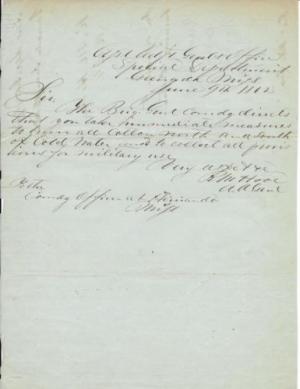 Asst Adjt Genls Office
Special Department
Grenada Miss
June 9th 1862
Sir
The Brig Genl Comdg directs
that you take immediate measures
to burn all Cotton North and South
of Cold Water and to collect all guns
for military use
Very
A A Genl
To the
Comdg Officer at Hernando
Miss